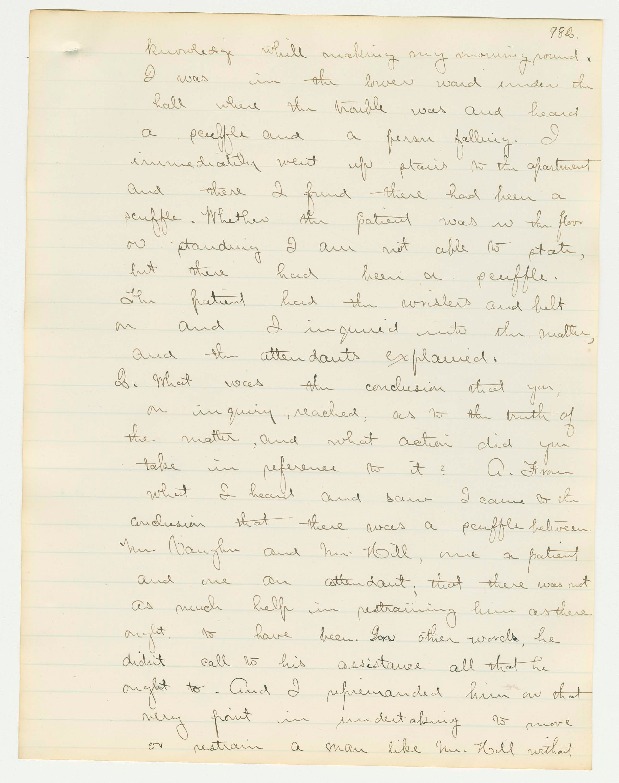 982.
knowledge while making my morning round.
I was in the lower ward under the
hall where the trouble was and heard
a scuffle and a person falling. I
immediately went up stairs to the apartment
and there I found there had been a
scuffle. Whether the patient was on the floor
or standing I am not able to state,
but there had been a scuffle.
The patient had the wristers and belt
on and I inquired into the matter,
and the attendants explained.
Q. What was the conclusion that you,
on inquiry, reached, as to the truth of
the matter, and what action did you
take in reference to it? A. From
what I heard and saw I came to the
conclusion that there was a scuffle between
Mr. Vaughn and Mr. Hill, one a patient
and one an attendant; that there was not
as much help in restraining him as there
ought to have been. In other words, he
didn't call to his assistance all that he
ought to. And I reprimanded him on that
very point in undertaking to move
or restrain a man like Mr. Hill without